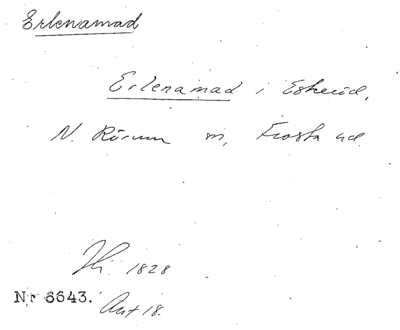 Erlenamad
Erlenamad i Eskeröd,
N. Rörum sn, Frosta hd.
Hi. 1828
Nr 6643. Akt 18.